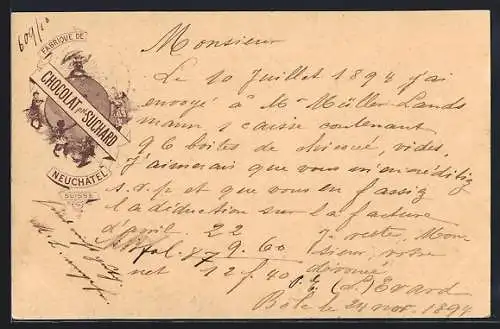 609/10
FABRIQUE DE
CHOCOLAT PH. SUCHARD
NEUCHATEL
SUISSE
Monsieur
Le 10 Juillet 1894 j'ai
envoyé à Mr Müller-Lands
mann 1 caisse contenant
96 boites de vides,
J'aimerais que vous m'en créditiez
s.v.p et que vous en
la déduction sur la facture
d'avril. 22
9.60
net 12 f. 40
Je reste, Mon-
sieur, votre
dévouée
Evard
Bôle le 24 nov. 1894